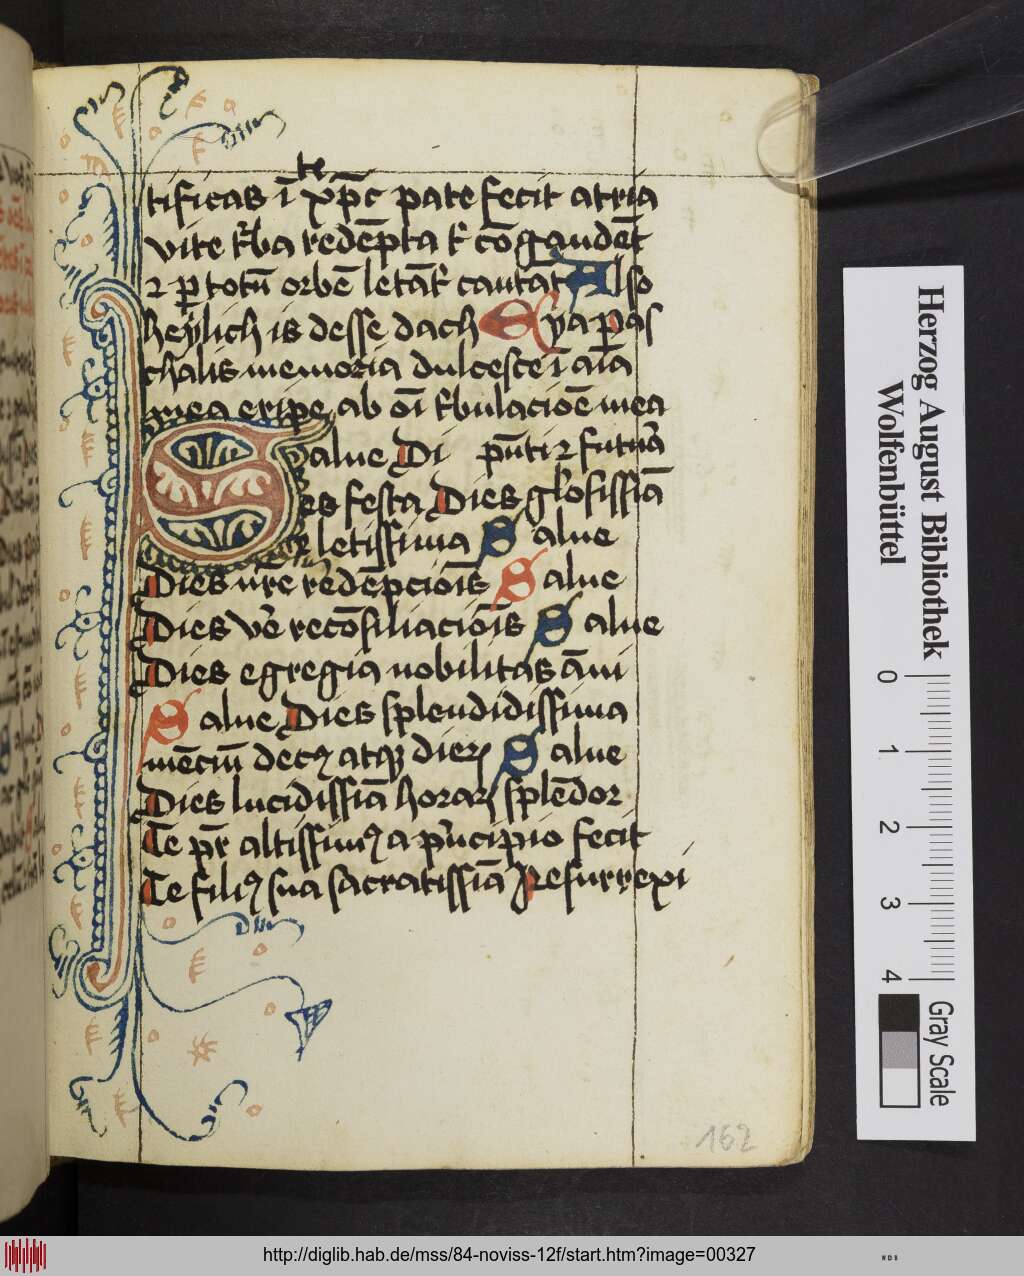 te
tificas ī xp̄c pate fecit atria
vite tͬba redēpta tͬ cōgaudēt
⁊ ꝑ totū orbē letāt cantāt Also
heylich is desse dach Eya pas
chalis memoria dulcesce ī aīa
mea eripe ab oī tͬbulacioē mea
Salue Di pn̄ti ⁊ futura
es festa Dies glosissīa
⁊ letissima Salue
Dies nr̄e redēpcioīs Salue
Dies v̄e recōsiliacioīs Salue
Dies egregia nobilitas āni
Salue Dies splendidissima
mēciū decꝰ atqꝫ dieꝝ Salue
Dies lucidissīa horaꝝ splēdor
Te pr̄ altissimꝰ a pͥncipio fecit
Te filiꝰ sua sacratissīa Resurrexi
162
Herzog August Bibliothek
Wolfenbüttel
0 1 2 3 4
Gray Scale
http://diglib.hab.de/mss/84-noviss-12f/start.htm?image=00327